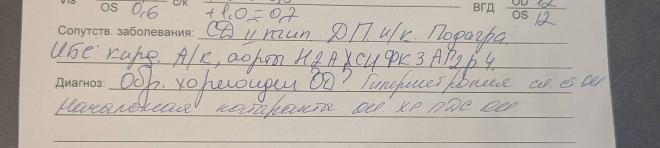 Vis OS 0,6 с/к +1,0 = 0,7 ВГД OD 12 OS 12
Сопутств. заболевания: СД II тип. ДП. и/к. Подагра.
ИБС: кард. А/к, аорты Н2А ХСН ФК3 АГ2 р.4.
Диагноз: Обр. хориоидеи OD? Гиперметропия сл. ст. ОИ
Начальная катаракта ОИ ХР ПДС ОИ.